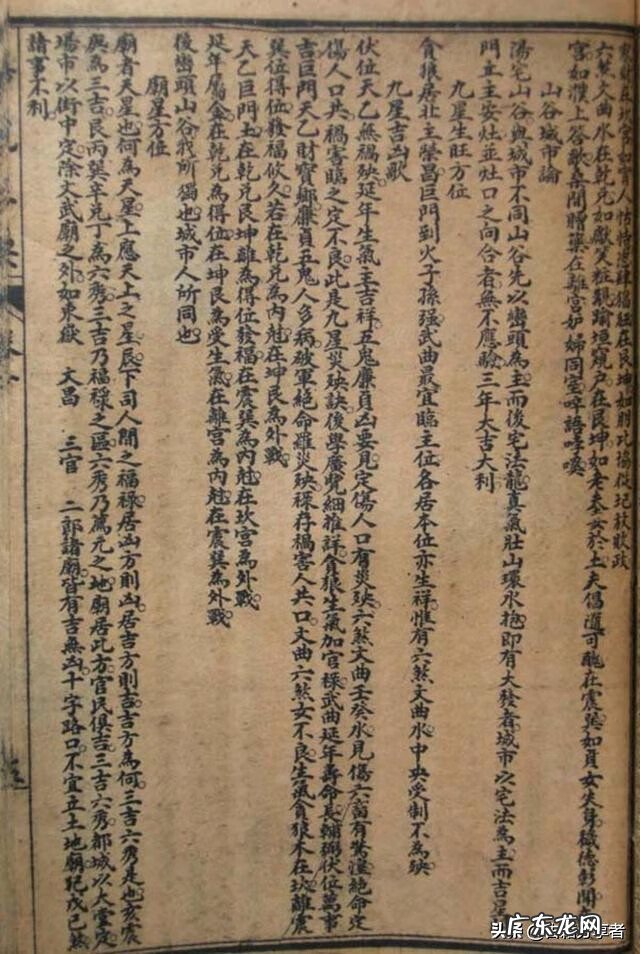 六煞文曲水在乾兌如獻笑粧親踰垣窺戶在艮坤如老夫女於士夫倡道可醜在震巽如貞女失
宮如濮上答歌桑間贈藥在離宮妒婦同室
山谷城市論
陽宅山谷與城市不同山谷先以巒頭為主而後宅法龍真氣壯山環水抱即有大發者城市以宅法為主而吉星
門主主安灶並灶口之向合者無不應驗三年大吉大利
九星生旺方位
貪狼居北主榮昌巨門到火子孫强武曲最宜臨主位各居本位亦生祥惟有六煞文曲水中央受制不為殃
九星吉凶歌
伏位天乙無禍殃延年生氣主吉祥五鬼廉貞凶要見定傷人口有災殃六煞文曲壬癸水見傷六畜有驚湟絕命定
傷人口共禍害臨之定不良此是九星災殃訣後學廣覽細推詳貪狼生氣加官祿武曲延年壽命長輔弼伏位萬事
吉巨門天乙財寶鄉廉貞五鬼人多病破軍絕命罹災殃祿存禍害人共口文曲六煞女不良生氣貪狼木在坎離震
巽位得位發福攸久若在乾兌為內尅在坤艮為外戰
天乙巨門土在乾兌艮坤離為得位發福在震巽為內尅在坎宮為外戰
延年屬金在乾兌為得位在坤艮為受生氣在離宮為內尅在震巽為外戰
後巒頭山谷我所獨也城市人所同也
廟星方位
廟者天星也何為天星上應天上之星辰下司人間之福祿居凶方則凶居吉方則吉吉方為何三吉六秀是也亥震
與為三吉艮丙巽辛兌丁為六秀三吉乃福祿之區六秀乃篤元之地廟居此方官民俱吉三吉六秀都城以大堂定
場市以街中定除文武廟之外如東嶽 大昌 三官 二郎諸廟皆有吉無凶十字路口不宜立土地廟犯戊己煞
諸事不利
头条
广东龙网